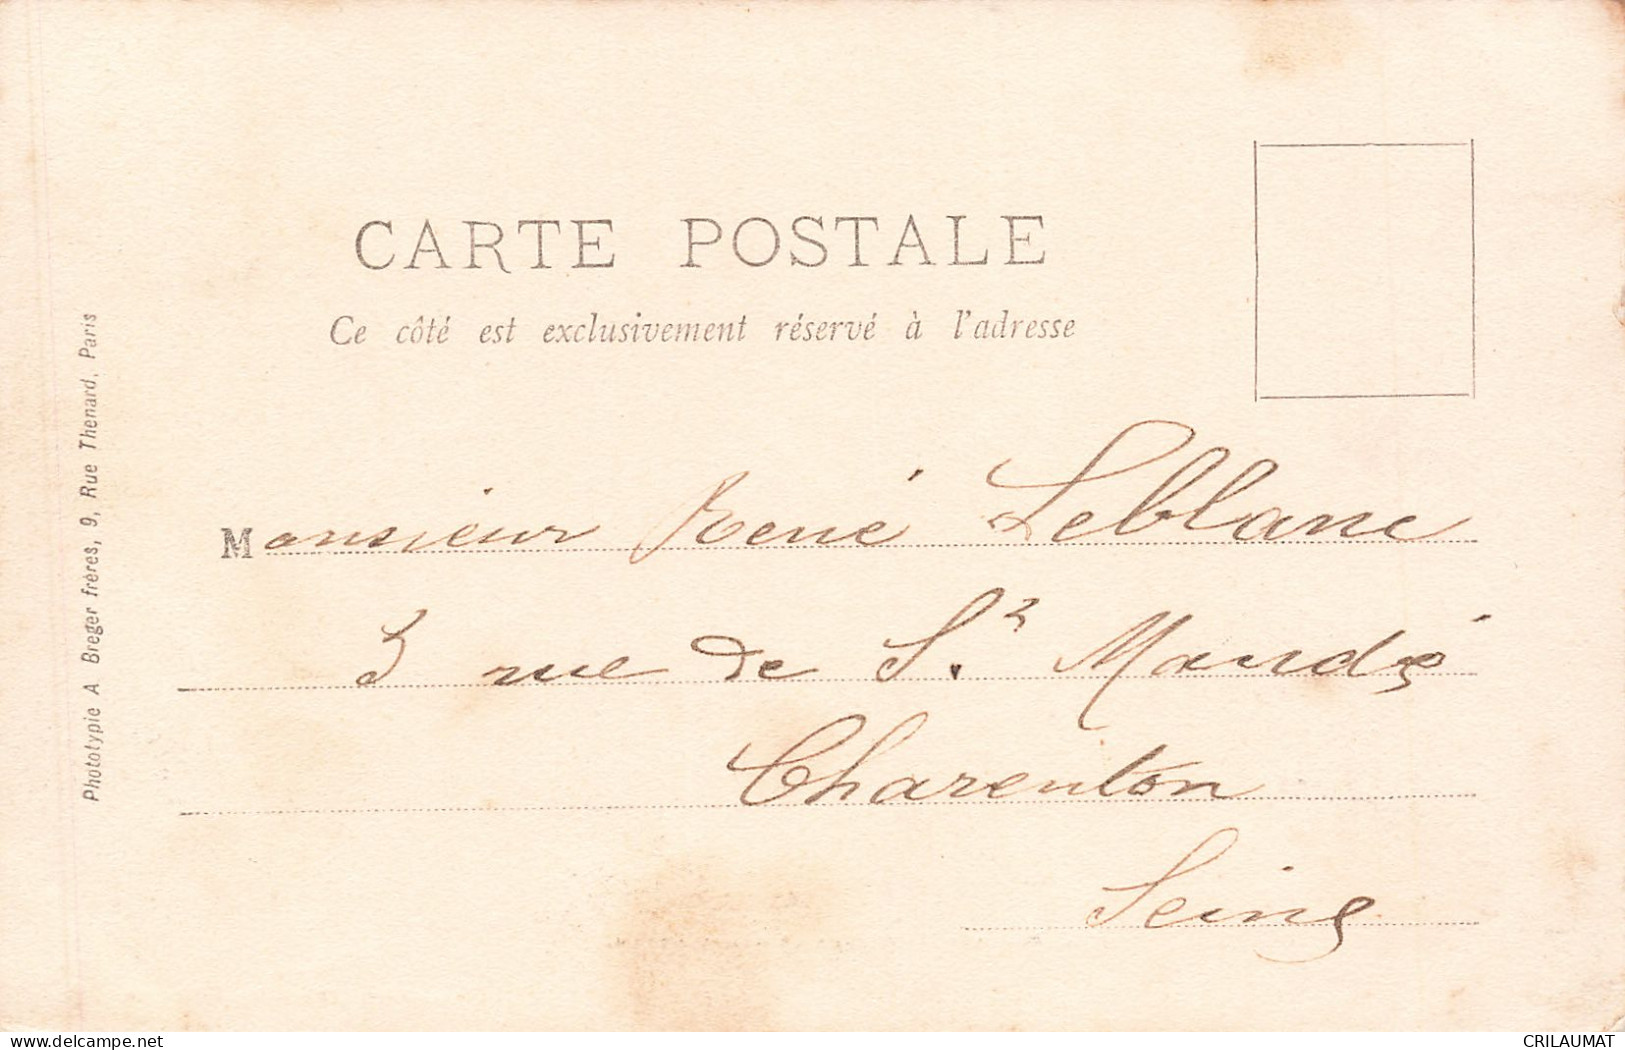 CARTE POSTALE
Ce côté est exclusivement réservé à l'adresse
Monsieur René Leblanc
3 rue de St. Mandé
Charenton
Seine
Phototypie A Breger frères, 9, Rue Thenard, Paris
www.delcampe.net
CRILAUMAT